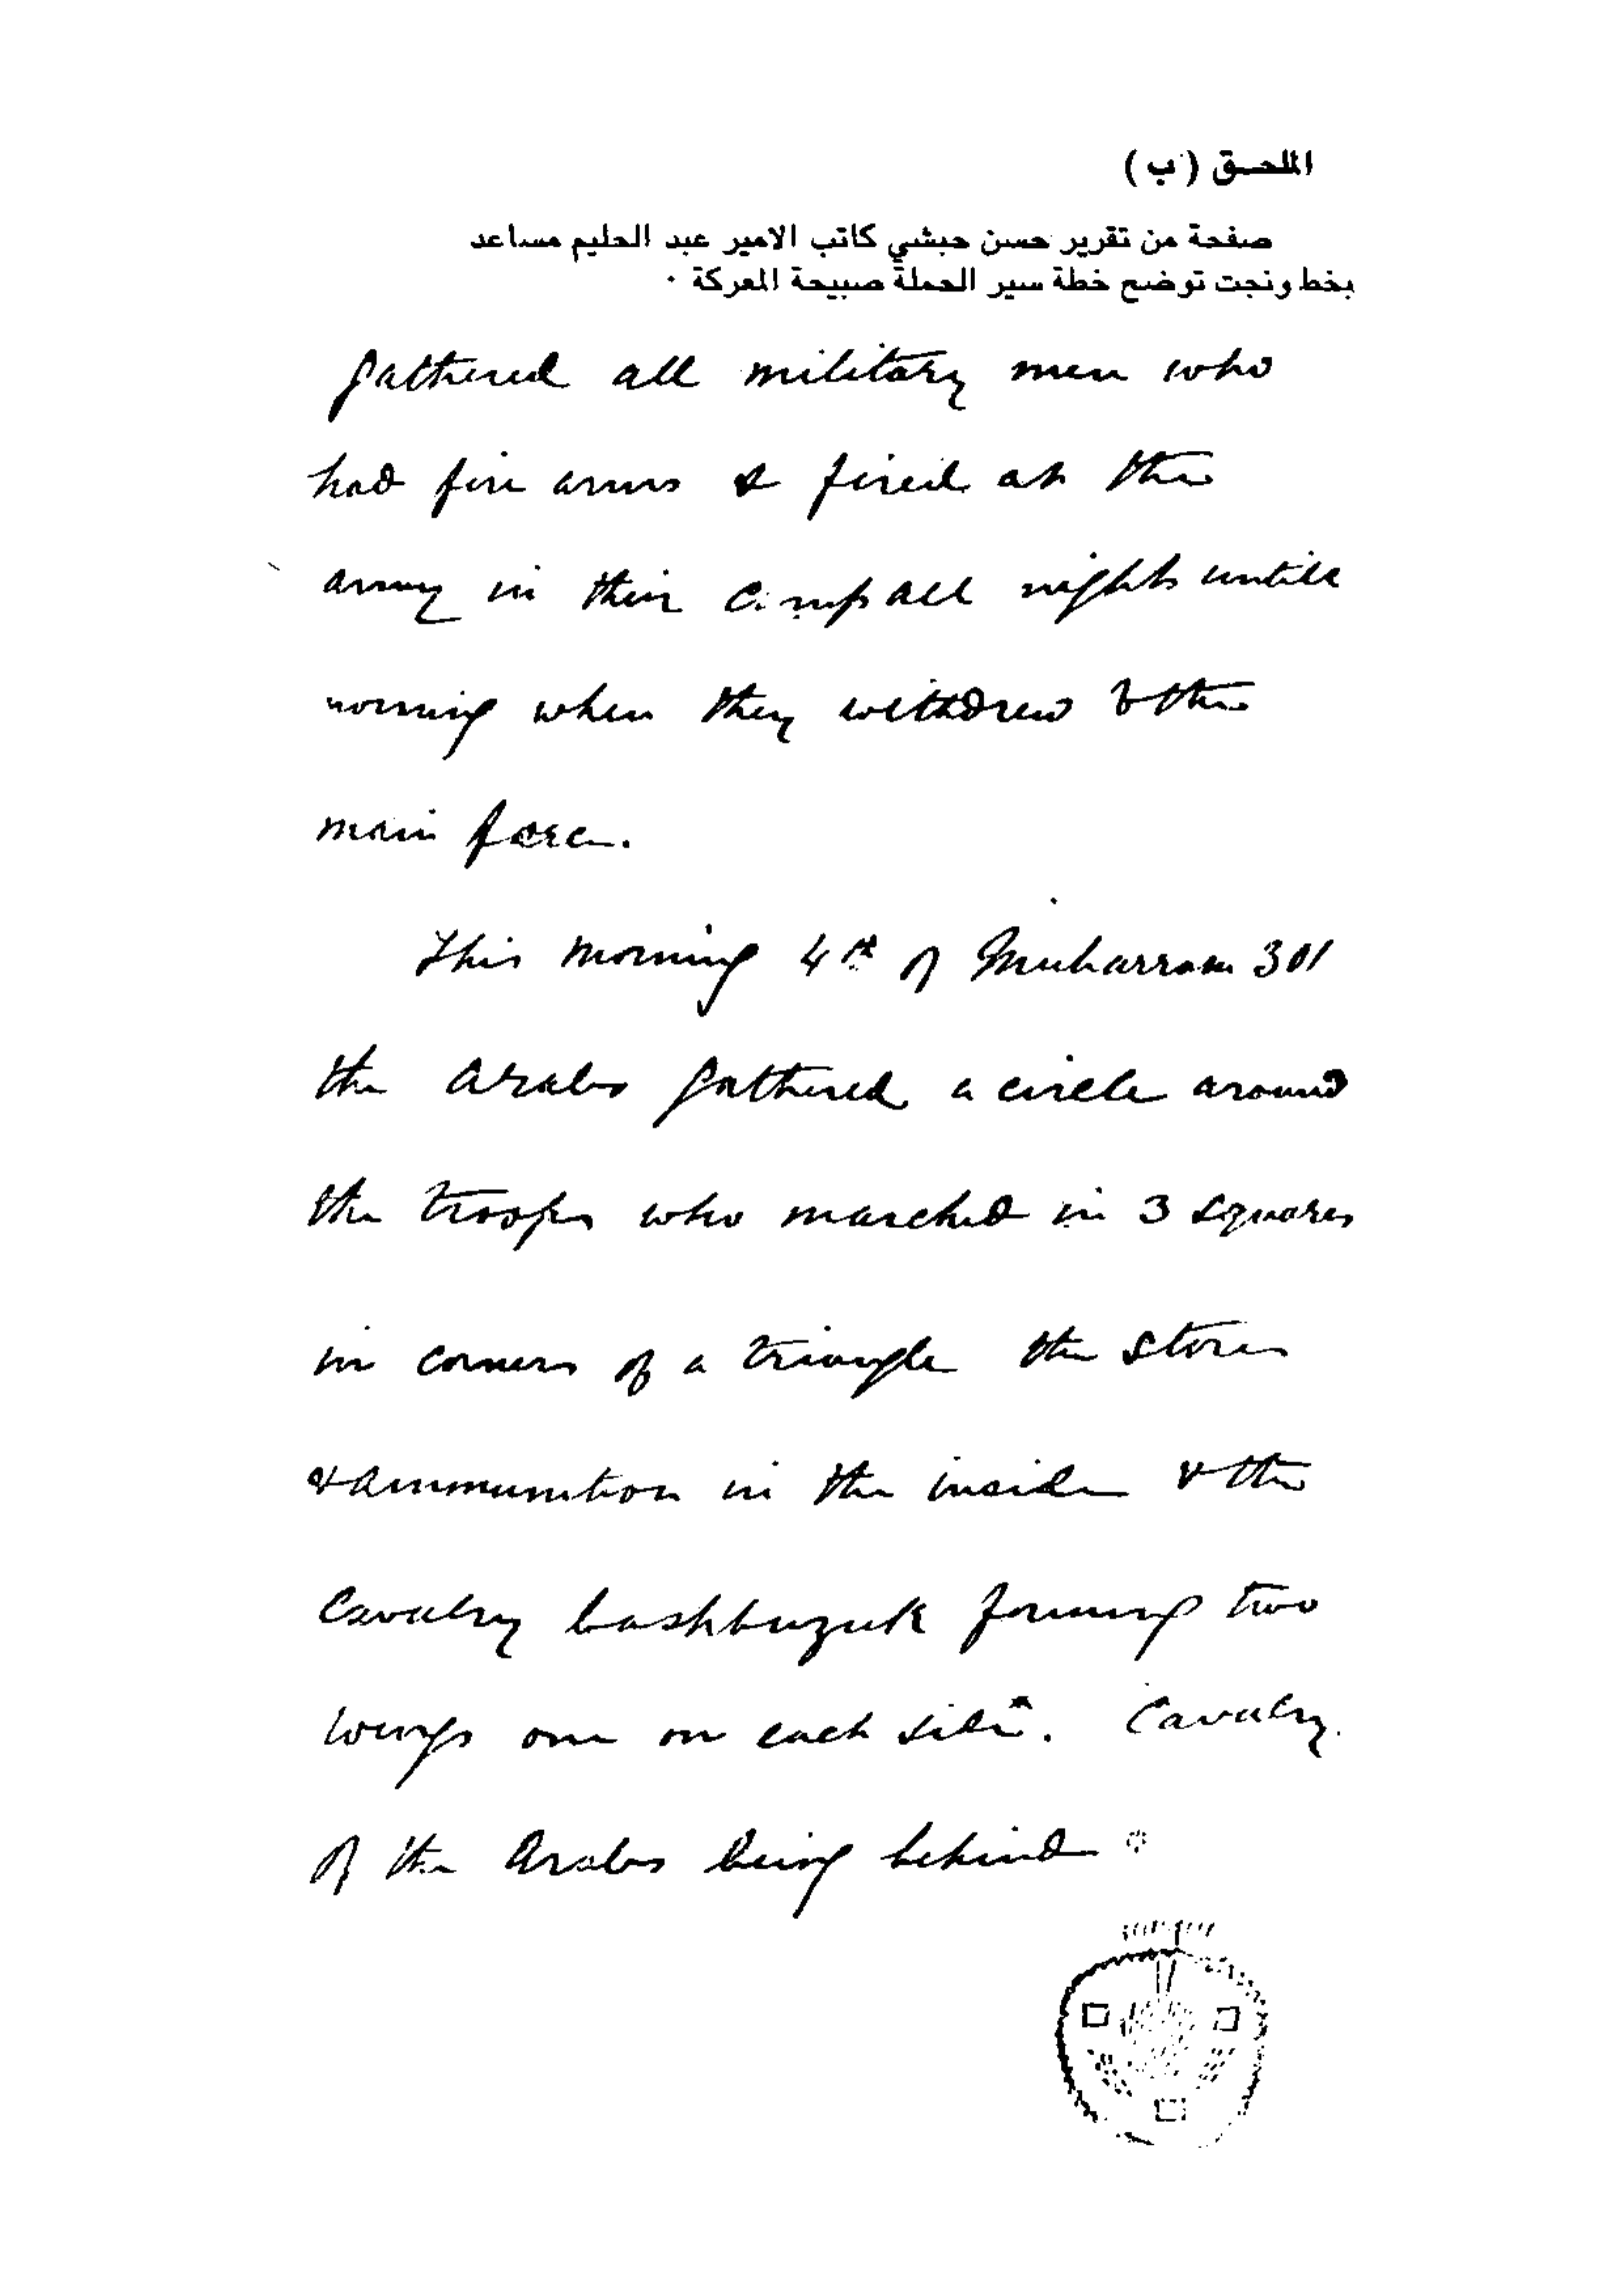 الملحق (ب)
صفحة من تقرير حسن حبشي كاتب الامير عبد الحليم مساعد
بخط ونجت توضح خطة سير الحملة صبيحة المعركة .
gathered all military men who
had fire arms & fired at the
army in their camp all night untill
morning when they withdrew to the
main force.
This morning 4th of Muharram 301
the Arabs gathered a circle around
the troops who marched in 3 squares
in corners of a triangle the stores
& ammunition in the inside & the
Cavalry bashbuzuk forming two
wings one on each side. Cavalry
of the Arabs being behind